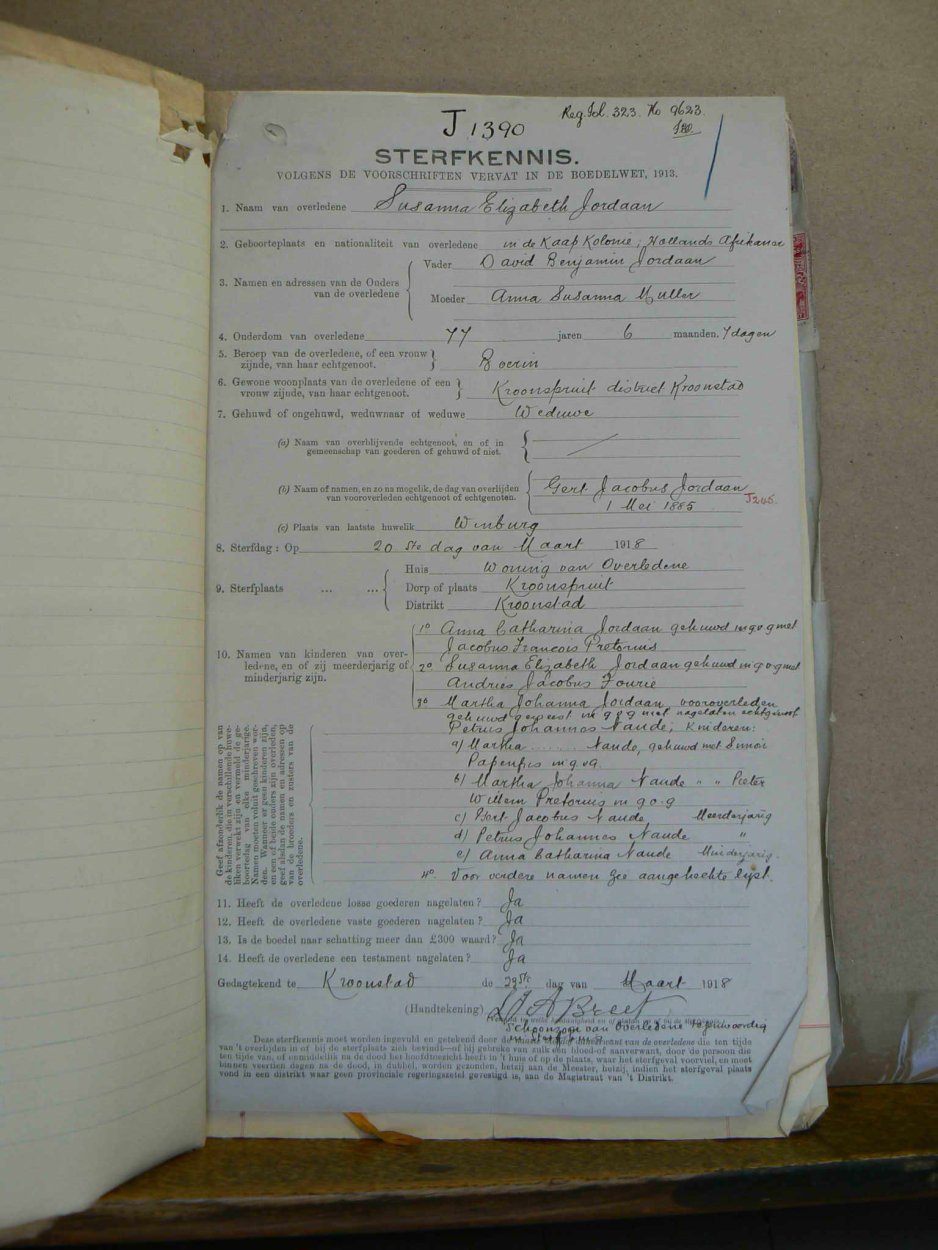 J 1390
Reg. Fol. 323. No 9623.
STERFKENNIS.
VOLGENS DE VOORSCHRIFTEN VERVAT IN DE BOEDELWET, 1913.
1. Naam van overledene Susanna Elizabeth Jordaan
2. Geboorteplaats en nationaliteit van overledene in de Kaap Kolonie; Hollands Afrikaner
3. Namen en adressen van de Ouders van de overledene
Vader David Benjamin Jordaan
Moeder Anna Susanna Muller
4. Ouderdom van overledene 77 jaren 6 maanden. 7 dagen
5. Beroep van de overledene, of een vrouw
zijnde, van haar echtgenoot. Boerin
6. Gewone woonplaats van de overledene of een
vrouw zijnde, van haar echtgenoot. Kroonspruit district Kroonstad
7. Gehuwd of ongehuwd, weduwnaar of weduwe Weduwe
(a) Naam van overblijvende echtgenoot, en of in
gemeenschap van goederen of gehuwd of niet.
(b) Naam of namen, en zo na mogelik, de dag van overlijden
van vooroverleden echtgenoot of echtgenoten.
Gert Jacobus Jordaan
1 Mei 1885
J245.
(c) Plaats van laatste huwelik Winburg
8. Sterfdag: Op 20 ste dag van Maart 1918
9. Sterfplaats ... ...
Huis Woning van Overledene
Dorp of plaats Kroonspruit
Distrikt Kroonstad
10. Namen van kinderen van over-
ledene, en of zij meerderjarig of
minderjarig zijn.
1o Anna Catharina Jordaan gehuwd in g.o.g met
Jacobus Francois Pretorius
2o Susanna Elizabeth Jordaan gehuwd in g.o.g met
Andries Jacobus Fourie
3o Martha Johanna Jordaan, vooroverleden
gehuwd geweest in g.o.g met nagelaten echtgenoot
Petrus Johannes Naude; Kinderen:
a) Martha ........ Naude, gehuwd met Simon
Papenfus in g.o.g.
b) Martha Johanna Naude " " Pieter
Willem Pretorius in g.o.g
c) Gert Jacobus Naude Meerderjarig
d) Petrus Johannes Naude "
e) Anna Catharina Naude Minderjarig.
4o. Voor verdere namen zie aangehechte lijst.
Geef afzonderlik de namen op van
de kinderen, die in verschillende huwe-
liken verwekt zijn en vermeld de ge-
boortedag van elke minderjarige.
Namen moeten voluit geschreven wor-
den. Wanneer er geen kinderen zijn,
en een of beide ouders zijn overleden,
geef alsdan de namen en adressen op
van de broeders en zusters van de
overledene.
11. Heeft de overledene losse goederen nagelaten? Ja
12. Heeft de overledene vaste goederen nagelaten? Ja
13. Is de boedel naar schatting meer dan £300 waard? Ja
14. Heeft de overledene een testament nagelaten? Ja
Gedagtekend te Kroonstad de 29ste dag van Maart 1918
(Handtekening) Breet
Schoonzoon van Overledene tegenwoordig
Deze sterfkennis moet worden ingevuld en getekend door de naaste bloed- of aanverwant van de overledene die ten tijde
van 't overlijden in of bij de sterfplaats zich bevindt—of bij gebreke van zulk een bloed-of aanverwant, door de persoon die
ten tijde van, of onmiddelik na de dood het hoofdtoezicht heeft in 't huis of op de plaats, waar het sterfgeval voorviel, en moet
binnen veertien dagen na de dood, in dubbel, worden gezonden, hetzij aan de Meester, hetzij, indien het sterfgeval plaats
vond in een distrikt waar geen provinciale regeringszetel gevestigd is, aan de Magistraat van 't Distrikt.